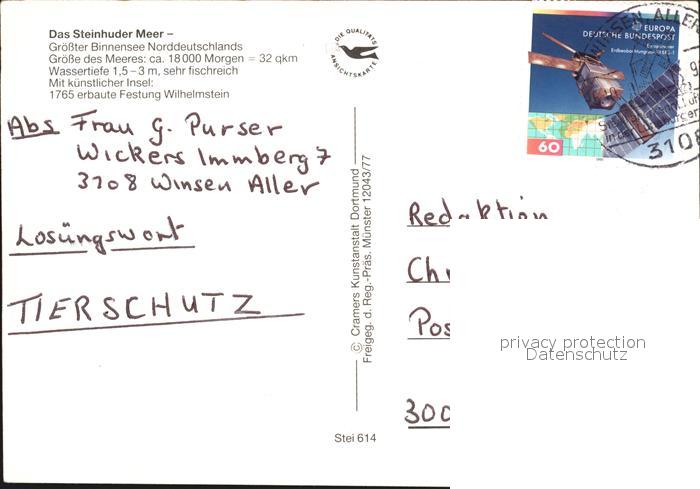 Das Steinhuder Meer –
Größter Binnensee Norddeutschlands
Größe des Meeres: ca. 18000 Morgen = 32 qkm
Wassertiefe 1,5 – 3 m, sehr fischreich
Mit künstlicher Insel:
1765 erbaute Festung Wilhelmstein
DIE QUALITÄTS
ANSICHTSKARTE
Abs Frau G. Purser
Wickers Immberg 7
3108 Winsen Aller
Losungswort
TIERSCHUTZ
© Cramers Kunstanstalt Dortmund
Freigeg. d. Reg.-Präs. Münster 12043/77
Stei 614
EUROPA
DEUTSCHE BUNDESPOST
Europäischer
60
WINSEN, ALLER
3108
Redaktion
Ch
Pos
300
privacy protection
Datenschutz